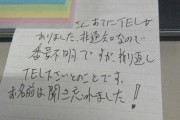 こんあてにTELが
ありました。非通知なので
番号不明ですが、折り返し
TEL下さいとのことです。
お名前は聞き忘れました!